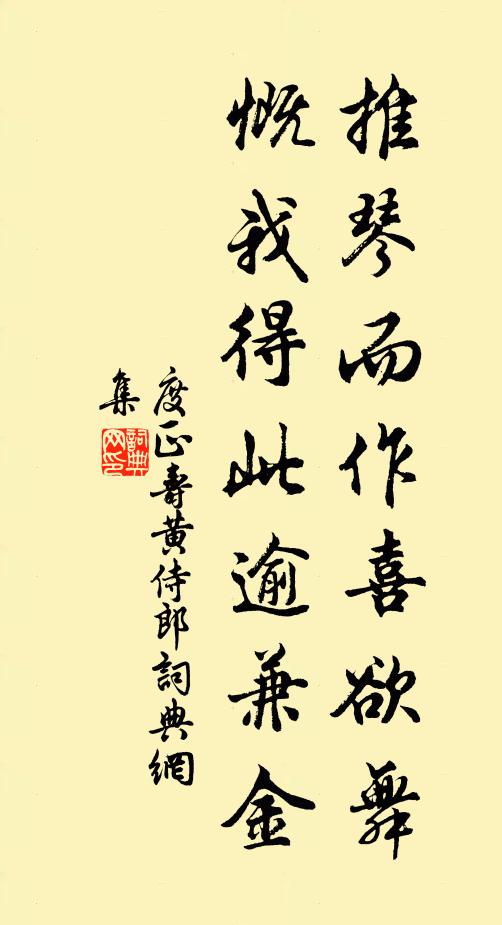 推琴而作喜欲舞
慨我得此逾兼金
度正壽黃侍郎詞典網
集
詞典
网印